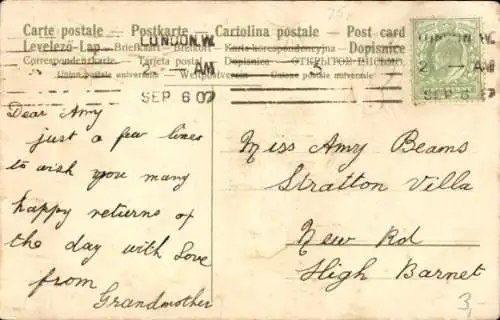 Carte postale — Postkarte — Cartolina postale — Post card
Levelező-Lap — Briefkaart — Brefkort — Karta korespondencyjna — Dopisnice
Correspondenzkarte — Tarjeta postal — Dopisnico — ОТКРЫТОЕ ПИСЬМО.
Union postale universelle — Weltpostverein — Union postale universelle
LONDON.W
AM
SEP 6 07
LONDON.W
2 — AM
SEP 6 07
Dear Amy
just a few lines
to wish you many
happy returns of
the day with Love
from
Grandmother
Miss Amy Beams
Stratton Villa
New Rd
High Barnet
3,-